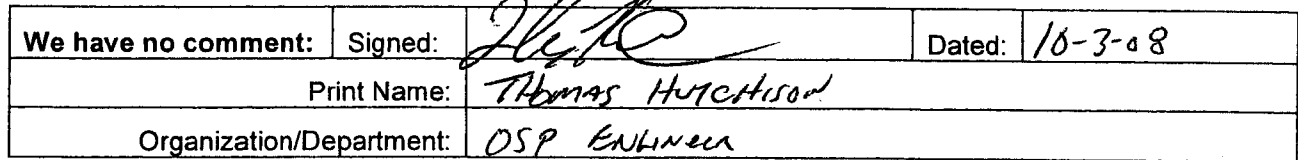 We have no comment: Signed: Dated: 10-3-08
Print Name: THOMAS HUTCHISON
Organization/Department: OSP ENGINEER